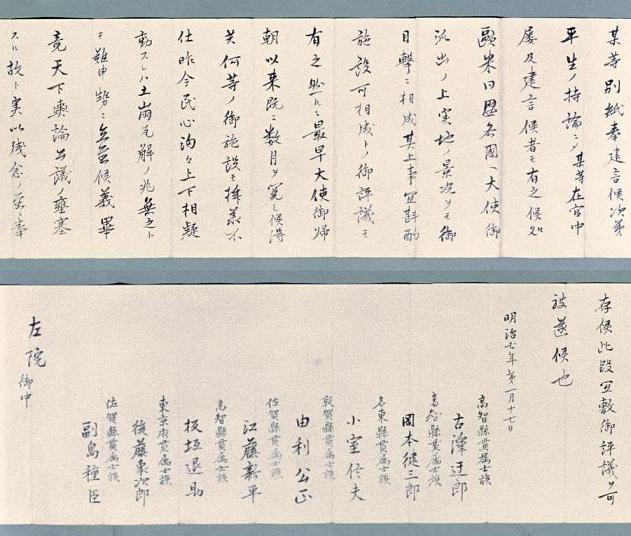 某等別紙奉建言候次第
平生ノ持論ニシテ某等在官中
屡及建言候者モ有之候処
欧米同盟各国ヘ大使御
派出ノ上実地ノ景況ヲモ御
目撃ニ相成其上事宜斟酌
施設可相成トノ御評議モ
有之然ルニ最早大使御帰
朝以来既ニ数月ヲ閲シ候得
共何等ノ御施設モ拝承不
仕昨今民心洶々上下相疑
動スレハ土崩瓦解ノ兆無之ト
モ難申勢ニ立至候義畢
竟天下輿論公議ノ壅塞
スル故ト実以残念ノ至ニ奉
存候此段宜敷御評議ヲ可
被遂候也
明治七年第一月十七日
高智縣貫属士族
古澤迂郎
高智縣貫属士族
岡本健三郎
名東縣貫属士族
小室信夫
敦賀縣貫属士族
由利公正
佐賀縣貫属士族
江藤新平
高智縣貫属士族
板垣退助
東京府貫属士族
後藤象次郎
佐賀縣貫属士族
副島種臣
左院 御中